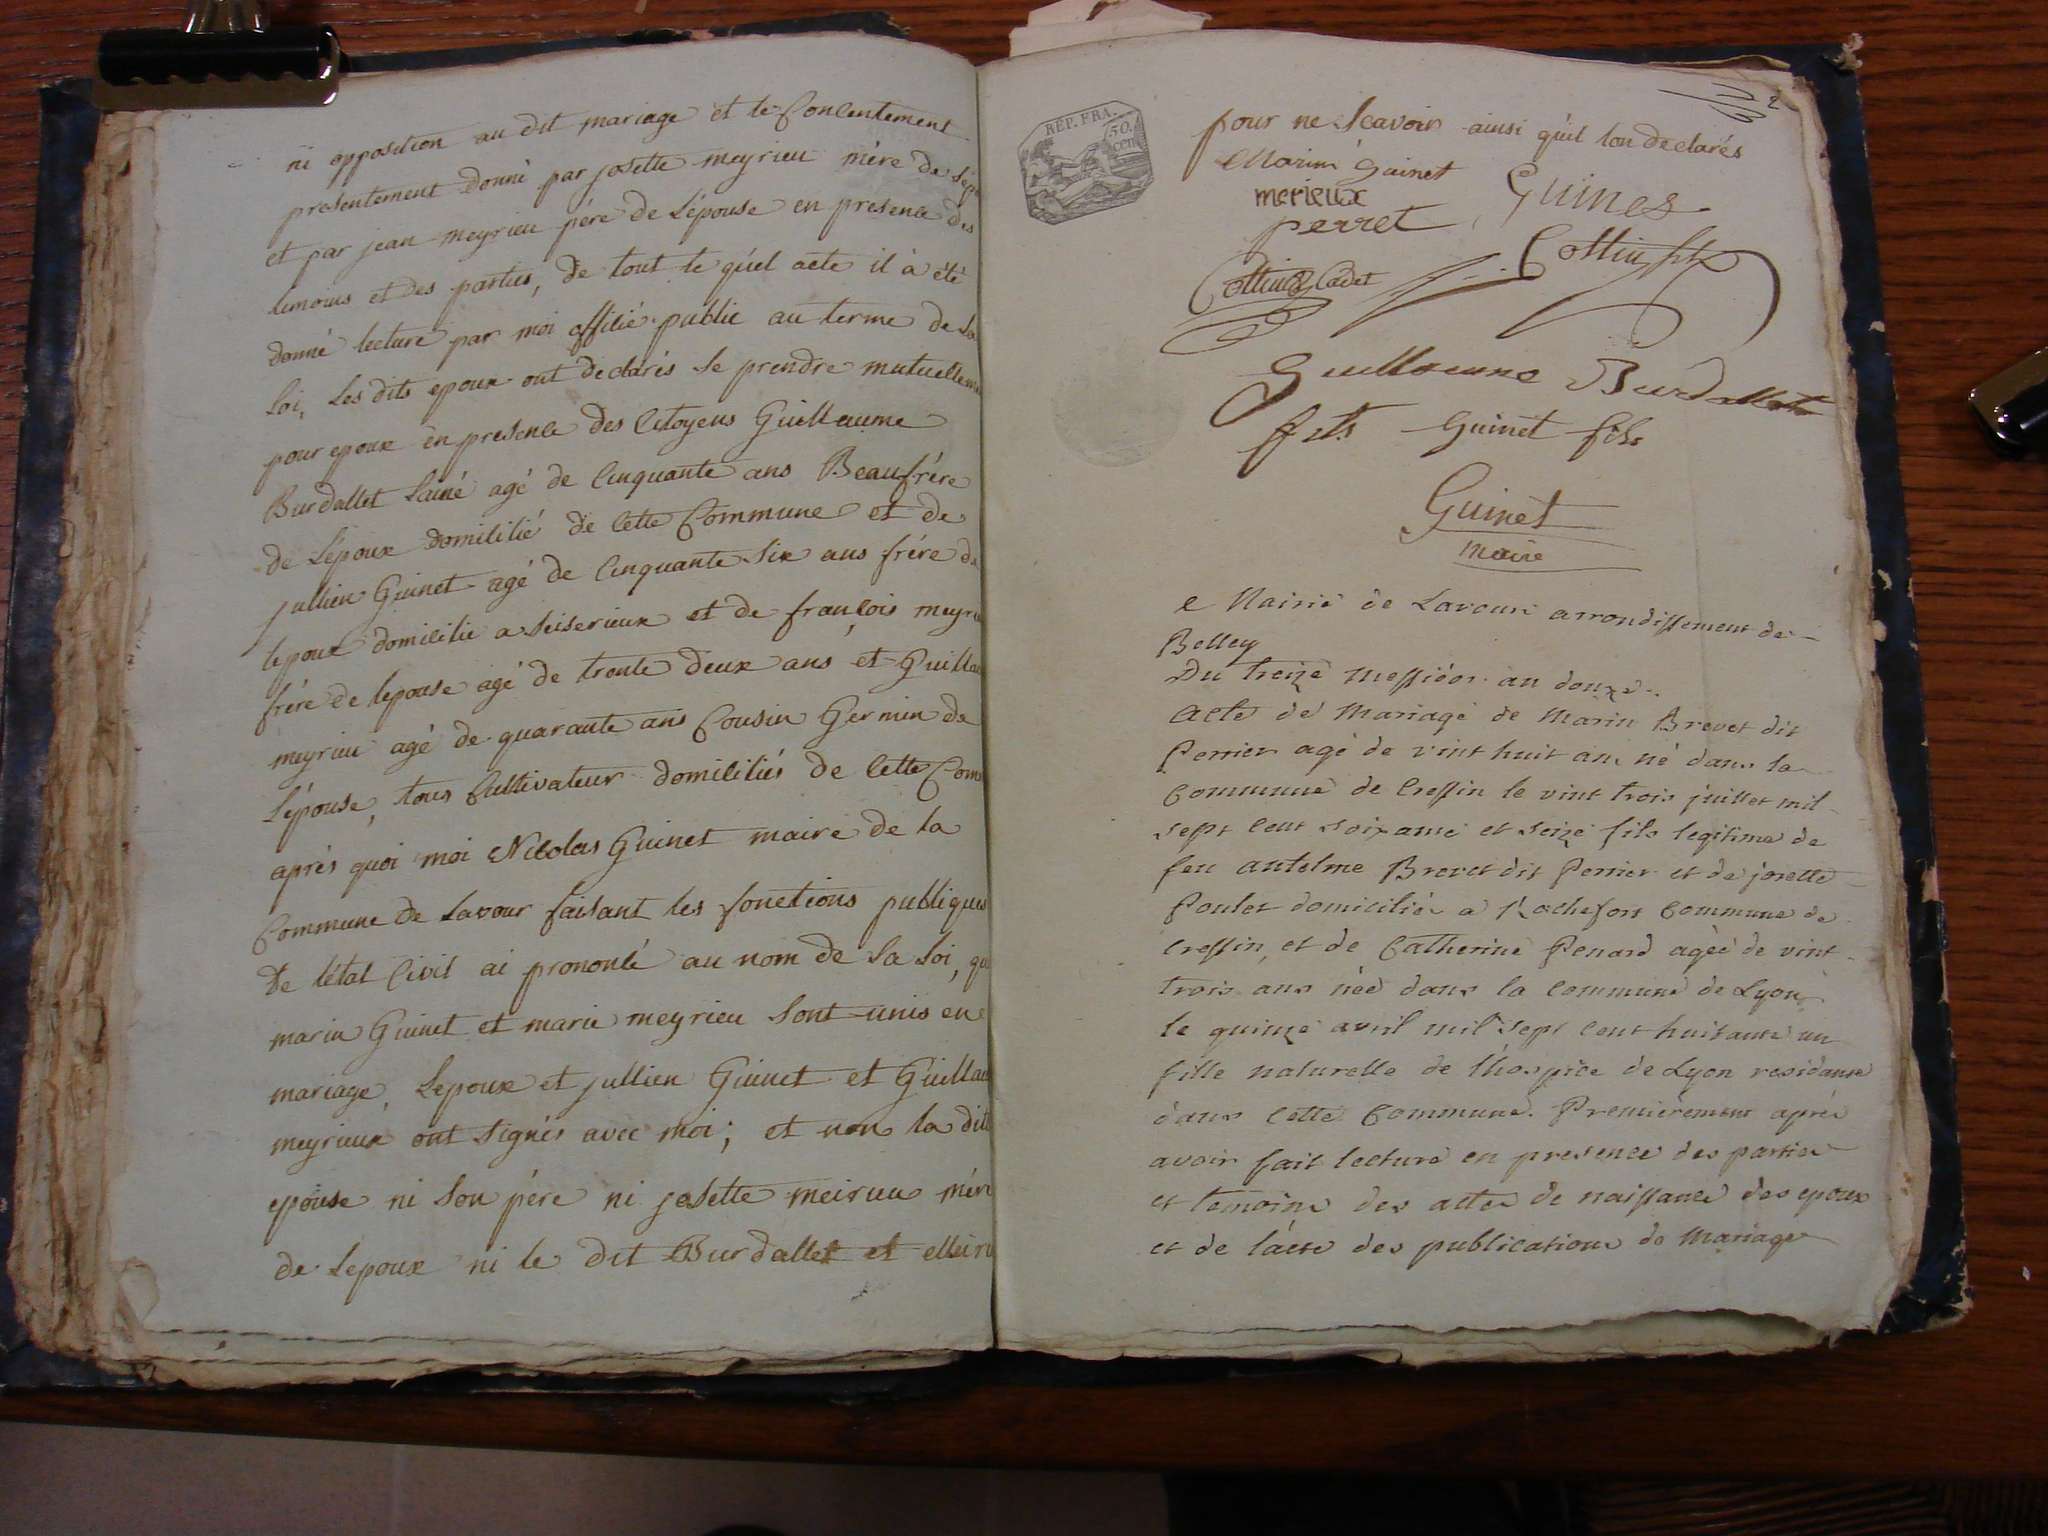 ni opposition au dit mariage et le Concentement
presentement donné par josette meyrieu mère de
et par jean meyrieu père de Lépouse en presence des
temoins et des parties, de tout le quel acte il à été
donné lecture par moi officié public au terme de la
loi, Les dits epoux ont declarés se prendre mutuellem
pour epoux en presence des Citoyens Guillaume
Burdallet Lainé agé de Cinquante ans Beaufrére
de Lépoux domicilié de cette Commune et de
jullien Guinet agé de Cinquante six ans frére de
lepoux domicilie a seiserieux et de françois meyri
frére de lepouse agé de trente deux ans et Guillau
meyrieu agé de quarante ans Cousin Germin de
Lépouse, tous Cultivateur domiciliés de cette Com
après quoi moi Nicolas Guinet maire de la
Commune de Lavour faisant les fonctions publiques
de létat Civil ai prononcé au nom de la Loi, que
marin Guinet et marie meyrieu sont unis en
mariage, Lepoux et jullien Guinet et Guillau
meyrieux ont signés avec moi; et non la dite
epouse ni son père ni josette meirieu mère
de Lepoux ni le dit Burdallet et
REP. FRA.
50.
cen
pour ne scavoir ainsi quil lon declarés
Marin Guinet
merieux
Guines
perret
Cottin
Cottin Cadet
Guilloeume Burdallet
Guinet fils
Guinet
maire
Mairie de Lavour arrondissement de
Belley
Du treize Messidor an douze
Acte de Mariage de Marin Brevet dit
Perrier agé de vint huit an né dans la
Commune de Cressin le vint trois juillet mil
sept cent soixante et seize fils legitime de
feu antelme Brevet dit Perrier et de josette
Poulet domiciliés a Rochefort Commune de
Cressin, et de Catherine Penard agée de vint
trois ans née dans la Commune de Lyon
le quinze avril mil sept cent huitante un
fille naturelle de lhospice de Lyon residante
dans cette Commune. Premièrement aprés
avoir fait lecture en presence des parties
et temoins des actes de naissance des epoux
et de lacte des publications de Mariage